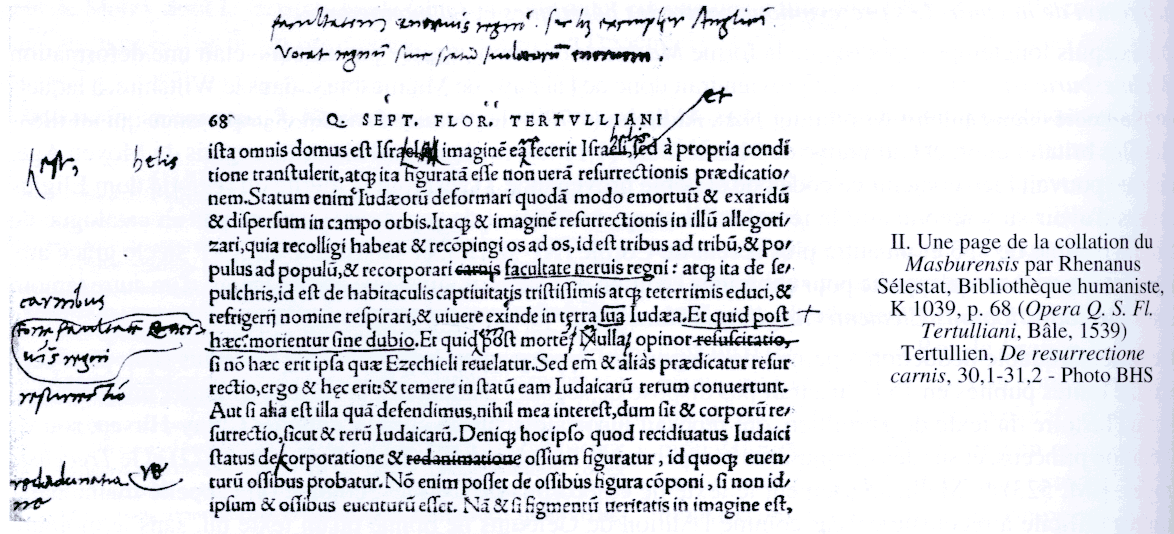 et
helis
68 Q. SEPT. FLOR. TERTVLLIANI
ista omnis domus est Israel, imaginē eā fecerit Israeli, sed à propria condi
tione transtulerit, atq; ita figuratā esse non uerā resurrectionis prædicatio/
nem. Statum enim Iudæorū deformari quodā modo emortuū & exaridū
& dispersum in campo orbis. Itaq; & imaginē resurrectionis in illū allegori/
zari, quia recolligi habeat & recōpingi os ad os, id est tribus ad tribū, & po/
pulus ad populū, & recorporari carnis facultate neruis regni: atq; ita de se/
pulchris, id est de habitaculis captiuitatis tristissimis atq; teterrimis educi, &
refrigerij nomine respirari, & uiuere exinde in terra suā Iudæa. Et quid post
hæc: morientur sine dubio. Et quid post mortē: Nulla, opinor resuscitatio,
si nō hæc erit ipsa quæ Ezechieli reuelatur. Sed em̄ & aliàs prædicatur resur
rectio, ergo & hęc erit: & temere in statū eam Iudaicarū rerum conuertunt.
Aut si alia est illa quā defendimus, nihil mea interest, dum sit & corporū re/
surrectio, sicut & rerū Iudaicarū. Deniq; hoc ipso quod recidiuatus Iudaici
status de corporatione & redanimatione ossium figuratur, id quoq; euen/
turū ossibus probatur. Nō enim posset de ossibus figura cōponi, si non id/
ipsum & ossibus euēturū esset. Nā & si figmentū ueritatis in imagine est,
helis
carnibus
II. Une page de la collation du
Masburensis par Rhenanus
Sélestat, Bibliothèque humaniste,
K 1039, p. 68 (Opera Q. S. Fl.
Tertulliani, Bâle, 1539)
Tertullien, De resurrectione
carnis, 30,1-31,2 - Photo BHS